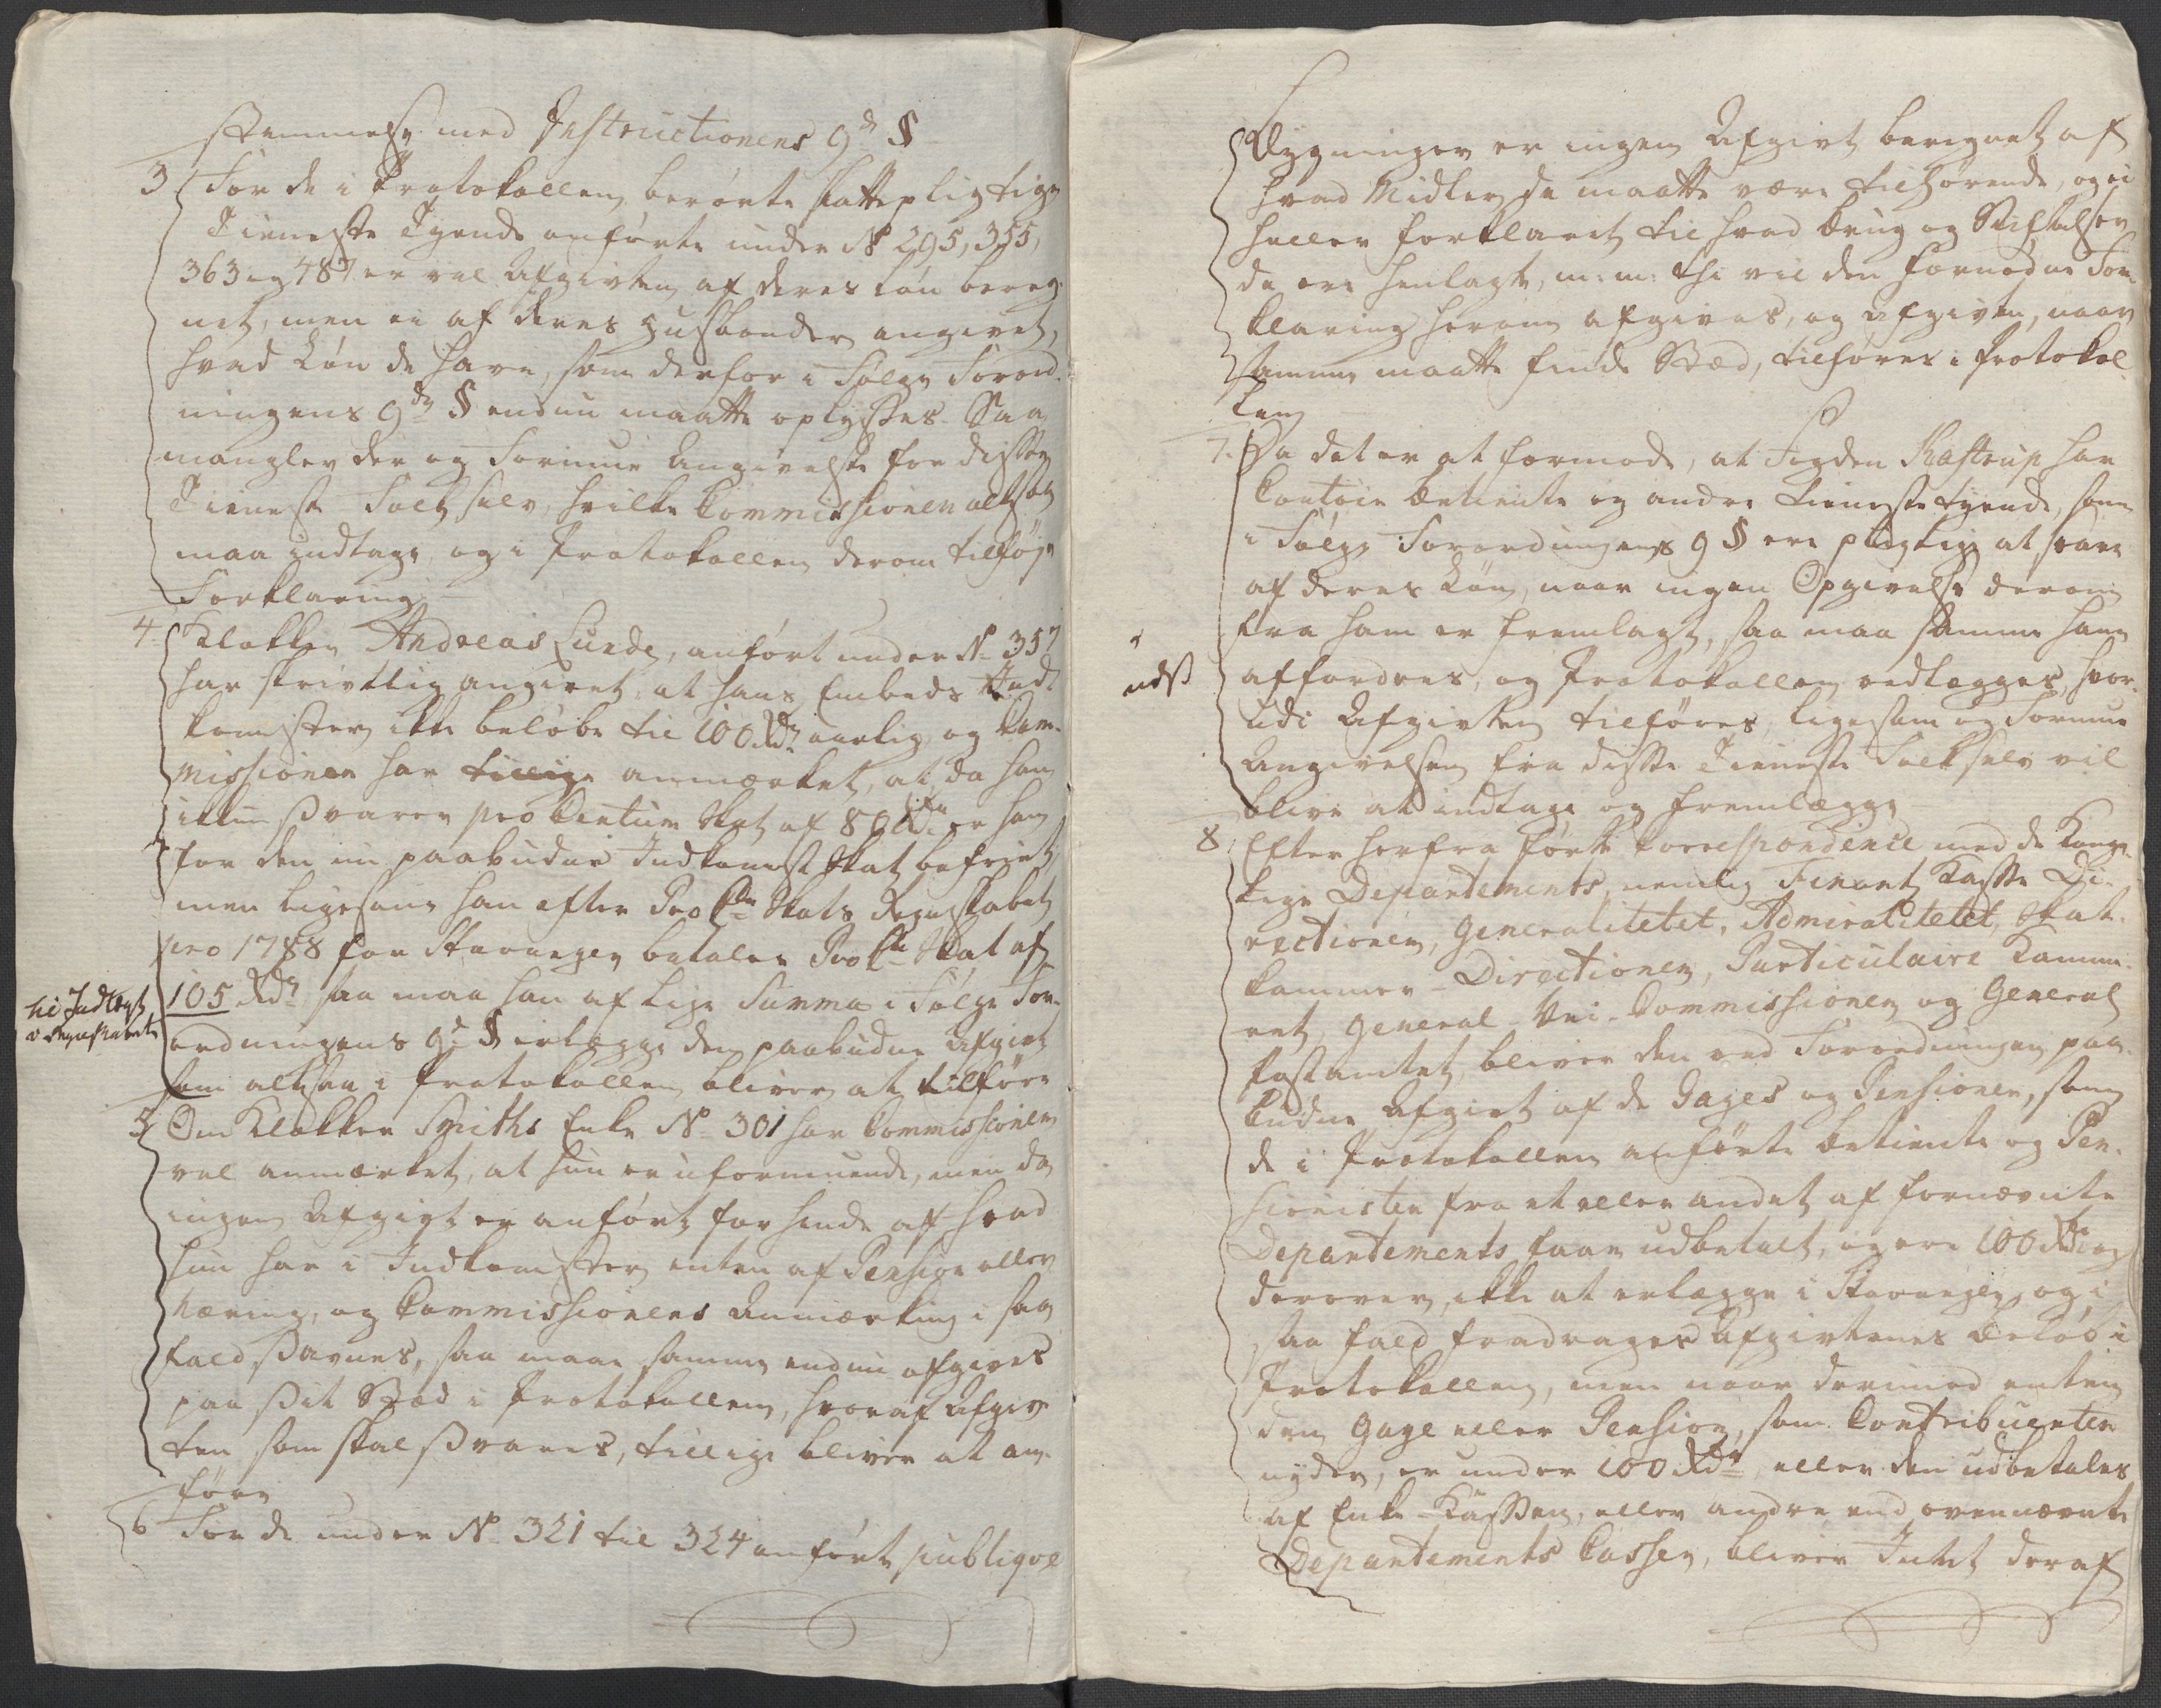 stemmelse med Instructionens 9de §
3 For de i Protokollen berørte skattepligtige
Tieneste Tyende anførte under No 295, 355,
363 og 487 er vel Afgivten af deres Løn bereg-
net, men ei af deres Husbonder angivet,
hvad Løn de have, som derfor i Følge Forord-
ningens 9de § endnu maatte oplyses. Saa
mangler der og Formue Angivelse for disse
Tieneste Folk selv, hvilke Commissionen altsaa
maa indtage og i Protokollen derom tilføje
Forklaring
4 Klokker Andreas Lunde, anført under No 357
har skrivtlig angivet, at hans Embeds Ind-
komster ikke beløbe til 100 Rdr aarlig og Com-
missionen har tillige anmærket, at, da han
ikkun svarer pro Centum Skat af 80 Rdr er han
for den nu paabudne Indkomst Skat befriet
men ligesom han efter Pro Cto Skats Regnskabet
pro 1788 for Stavanger betaler Pro Cto Skat af
105 Rdr saa maa han af lige Summa i Følge For-
til Indtægt
i Regnskabet
ordningens 9de § erlægge den paabudne Afgivt
som altsaa i Protokollen bliver at tilføre
5 Om Klokker Smiths Enke No 301 har Commissionen
vel anmærket, at hun er uformuende, men da
ingen Afgigt er anført for hende af hvad
hun har i Indkomster enten af Pension eller
Næring, og Commissionens Anmærkning i saa
fald savnes, saa maae samme endnu afgives
paa sit Stæd i Protokollen, hvoraf Afgiv-
ten som skal svares, tillige bliver at an-
føre
6 For de under No 321 til 324 anført publiqve
Bygninger er ingen Afgivt beregnet af
hvad Midler de maatte være tilhørende, og ei
heller forklaret til hvad Brug og Stiftelser
de ere henlagt, m: m: thi vil den fornødne For-
klaring herom afgives, og Afgivten, naar
samme maatte finde Stæd, tilføres i Protokol-
len
7. Da det er at formode, at Fogden Kastrup har
Contoir Betiente og andre Tieneste tyende, som
i Følge Forordningens 9 § ere pligtige at svare
af deres Løn, naar ingen Opgivelse derom
fra ham er fremlagt, saa maa samme ham
affordres, og Protokollen vedlægges, hvor-
udi Afgivten tilføres, ligesom og Formue
Angivelsen fra disse Tieneste Folk selv vil
blive at indtage og fremlægge
8 Efter herfra førte Correspondence med de Konge-
lige Departements, nemlig Finantz Kasse Di-
rectionen, Generalitetet, Admiralitetet, Skat-
kammer-Directionen, Particulaire Kamme-
ret, General-Vei-Commissionen og General
Postamtet, bliver den ved Forordningen paa-
budne Afgivt af de Gages og Pensioner, som
de i Protokollen anførte Betiente og Pen-
sionister fra et eller andet af fornævnte
Departements faar udbetalt, og ere 100 Rdr og
derover, ikke at erlægge i Stavanger, og i
saa fald fradrages Afgivtenes Beløb i
Protokollen, men naar derimod enten
den Gage eller Pension, som Contribuenten
nyder, er under 100 Rdr eller den udbetales
af Enke-Kassen, eller andre end ovennævnte
Departements Casser, bliver Intet deraf